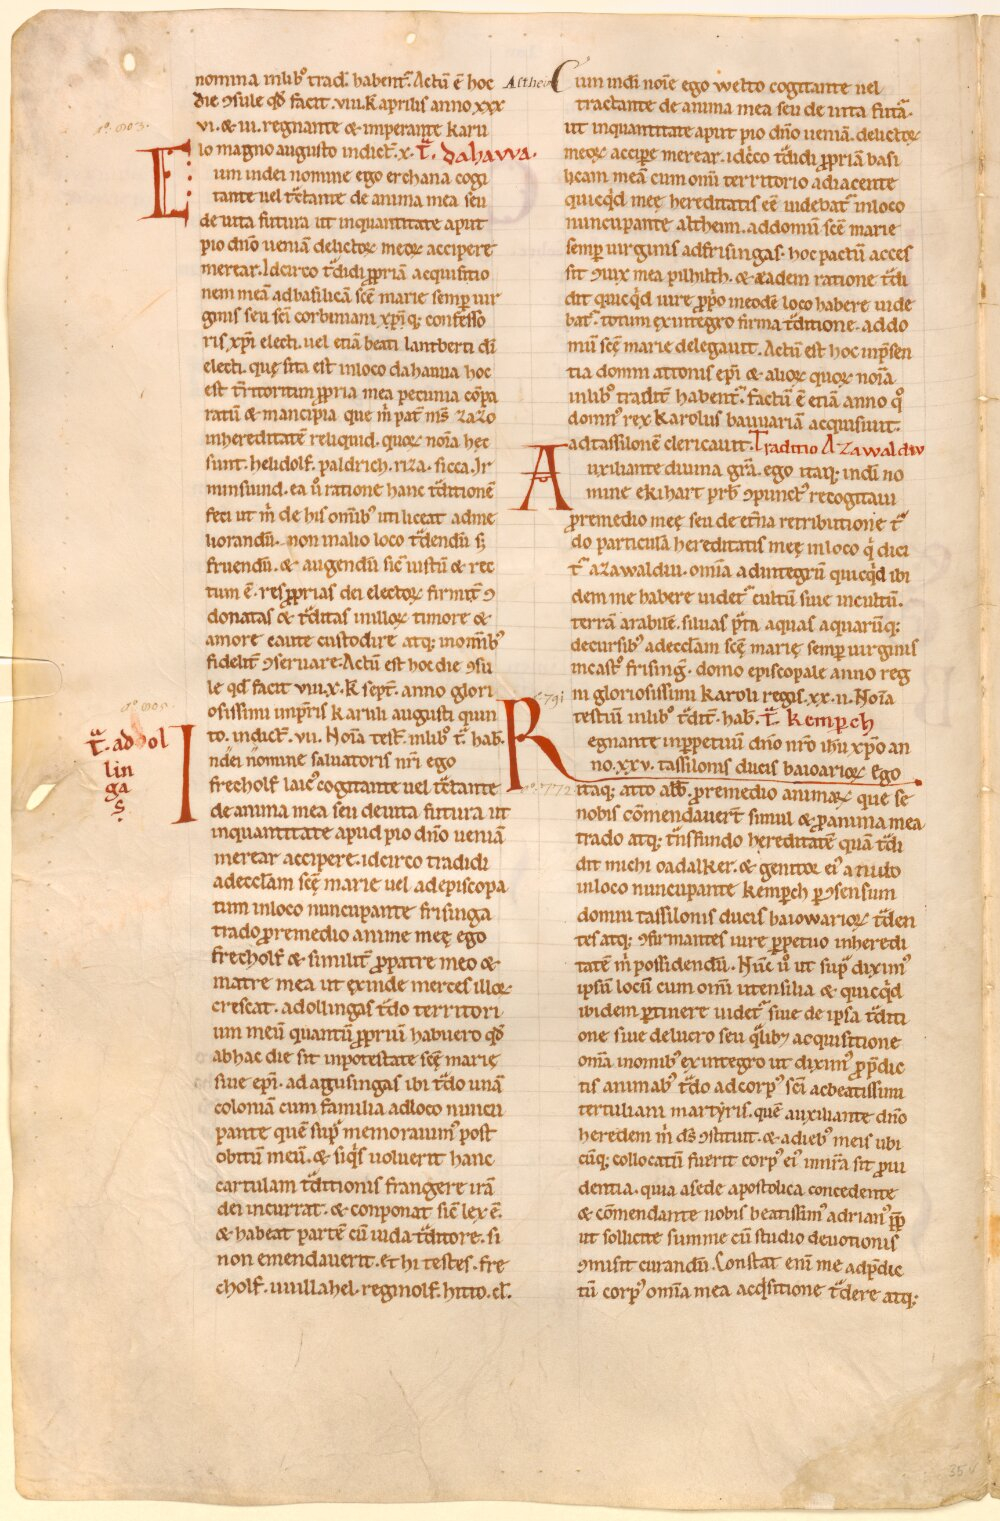 nomina inlib' trad. habent. Actū ē hoc
die ꝯsule qd' facit. viii. k̄ aprilis anno xxx
vi. & iii. regnante & imperante karu
lo magno augusto indict̄. x. T̄. dahavva.
Eum indei nomine ego erchana cogi
tante uel tc̄tante de anima mea seu
de uita futura ut inquantitate aput
pio dn̄o ueniā delictoꝝ meoꝝ accipere
merear. Idcirco t̄didi ꝓpriā acquisitio
nem meā adbasilicā sc̄ę marie semper uir
ginis seu sc̄i corbiniani xp̄iq; confesso
ris xp̄i electi. uel etiā beati lantberti dī
electi. quę sita est inloco dahauua hoc
est t̄ritoriūm ꝓpria mea pecunia cōpa
ratū & mancipia que m̄ pat̄ m̄s zazo
inhereditatē reliquid. quoꝝ noīa hęc
sunt. helidolf. paldrich. riza. sicca. Ir
minsuind. ea ů ratione hanc t̄ditionē
feci ut m̄ de his omīb' uti liceat adme
liorandū. non inalio loco t̄dendū s;
fruendū. & augendū sic̄ iustū & rec
tum ē. res ꝓprias dei electoꝝ firmit̄ ꝯ
donatas & t̄ditas inilloꝝ timore &
amore caute custodire atq; inomīb'
fidelit̄ ꝯseruare. Actū est hoc die ꝯsu
le qd' facit viii. x. k̄ sept̄. anno glori
osissimi imp̄ris karuli augusti quin
to. indict̄. vii. Noīa test̄. inlib' t̄. hab̄.
T̄. ad dol
lin
ga
s.
Indei nomine saluatoris nr̄i ego
frecholf laic' cogitante uel tc̄tante
de anima mea seu de uita futura ut
inquantitate apud pio dn̄o ueniā
merear accipere. idcirco tradidi
adeccl̄am sc̄ę marie uel adepiscopa
tum inloco nuncupante frisinga
trado ꝓremedio anime meę ego
frecholf & similit̄ ꝓpatre meo &
matre mea ut exinde merces illoꝝ
crescat. adollingas t̄do territori
um meū quantū ꝓpriū habuero qd'
abhac die sit inpotestate sc̄ę marię
siue ep̄i. ad agusingas ibi t̄do unā
coloniā cum familia adloco nuncu
pante quē sup̄ memorauim' post
obitū meū. & siq̇s uoluerit hanc
cartulam t̄ditionis frangere irā
dei incurrat. & conponat sic̄ lex ē.
& habeat partē cū iuda t̄ditore. si
non emendauerit. et hi testes. fre
cholf. uuillahel. reginolf. hitto. el.
Altheim Cum indī noīe ego wetto cogitante uel
tractante de anima mea seu de uita futā.
ut inquantitate aput pio dn̄o ueniā. delictoꝝ
meoꝝ accipe merear. idc̄co t̄didi ꝓpriā basi
licam meā cum omī territorio adiacente
quicq̇d meę hereditatis eē uidebat̄ inloco
nuncupante altheim. addomū sc̄ę marię
semꝑ uirginis adfrisingas. hoc pactū acces
sit ꝯiux mea pilhilth. & eadem ratione t̄di
dit quicq̇d iure ꝓpo ineodē loco habere uide
bat̄. totum ex integro firma t̄ditione. addo
mū sc̄ę marie delegauit. Actū est hoc inp̄sen
tia domni attonis ep̄i & alioꝝ quoꝝ noīa
inlib' tradit̄ habent̄. factū ē etiā anno q̊
domn' rex Karolus bauuariā acquisiuit.
adtassilonē clericauit. Traditio Azawaldiv
Auxiliante diuina gr̄a. ego itaq; indī no
mine ekihart prb̄ ꝯpunct' recogitaui
ꝓremedio meę seu de et̄na retributione t̄
do particulā hereditatis meę inloco q̇ dici
t̄ azawaldiu. omīa adintegrū quicq̇d ibi
dem me habere uidet̄ cultū siue incultū.
terrā arabilē. siluas p̄ta aquas aquarūq;
decursib' adeccl̄am sc̄ę marię semꝑ uirginis
incast̊ frisinḡ. domo episcopale anno reg
ni gloriosissimi karoli regis. xx. ii. Noīa
testiū inlib' t̄dit̄. hab̄. T̄. kemp̱ch
Regnante inꝑpetuū dn̄o nr̄o ihū xp̄o an
no. xxv. tassilonis ducis baioarioꝝ Ego
itaq; atto abb̄. ꝓremedio animaꝝ que se
nobis cōmendauer̄t simul & ꝓanima mea
trado atq; t̄nsfundo hereditatē quā t̄di
dit michi oadalker. & genitor ei' a nulo
inloco nuncupante kemp̱ch ꝑ ꝯsensum
domni tassilonis ducis baiowarioꝝ t̄den
tes atq; ꝯfirmantes iure ꝑpetuo inheredi
tatē m̄ possidendū. Nūc ů ut sup̄ dixim'
ipsū locū cum omī utensilia & quicq̇d
ibidem ꝑtinere uidet̄ siue de ipsa t̄diti
one siue deluero seu q̇lib; acquisitione
omīa inomīb' ex integro ut dixim' ꝓp̄dic
tis animab' t̄do adcorp' sc̄i acbeatissimi
tertuliani martẏris. quē auxiliante dn̄o
heredem m̄ ds̄ ꝯstituit. & adieb' meis ubi
cūq; collocatū fuerit corp' ei' inn̄ra sit ꝓui
dentia. quia asede apostolica concedente
& cōmendante nobis beatissim' adrian' pp̄
ut sollicite summe cū studio deuotionis
ꝯmisit curandū. Constat eni me adp̄dic
tū corp' omīa mea acq̇sitione t̄dere atq;
35v